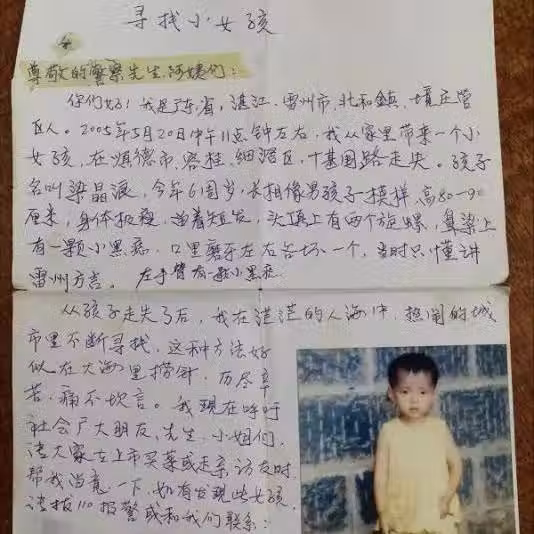 寻找小女孩
尊敬的警察先生.阿姨们:
你们好!我是广东省,湛江.雷州市.北和鎮.境庄管
区人。2005年5月20日中午11点钟左右,我从家里带来一个小
女孩,在顺德市.容桂.细滘区.十基围路走失。孩子
名叫梁晶浪,今年6周岁.长相像男孩子一模样.高80—90
厘来,身体极瘦.留着短发,头顶上有两个旋螺,鼻梁上
有一颗小黑痣.口里磨牙左右各坏一个,当时只懂讲
雷州方言。左手臂有一颗小黑痣.
从孩子走失了后,我在茫茫的人海中.热闹的城
市里不断寻找,这种方法好
似在大海里捞针,历尽辛
苦.痛不坎言。我现在呼吁
社会广大朋友,先生.小姐们,
请大家在上市买菜或走亲访友时
帮我留意一下,如有发现此女孩,
请拔110报警或和我们联系: